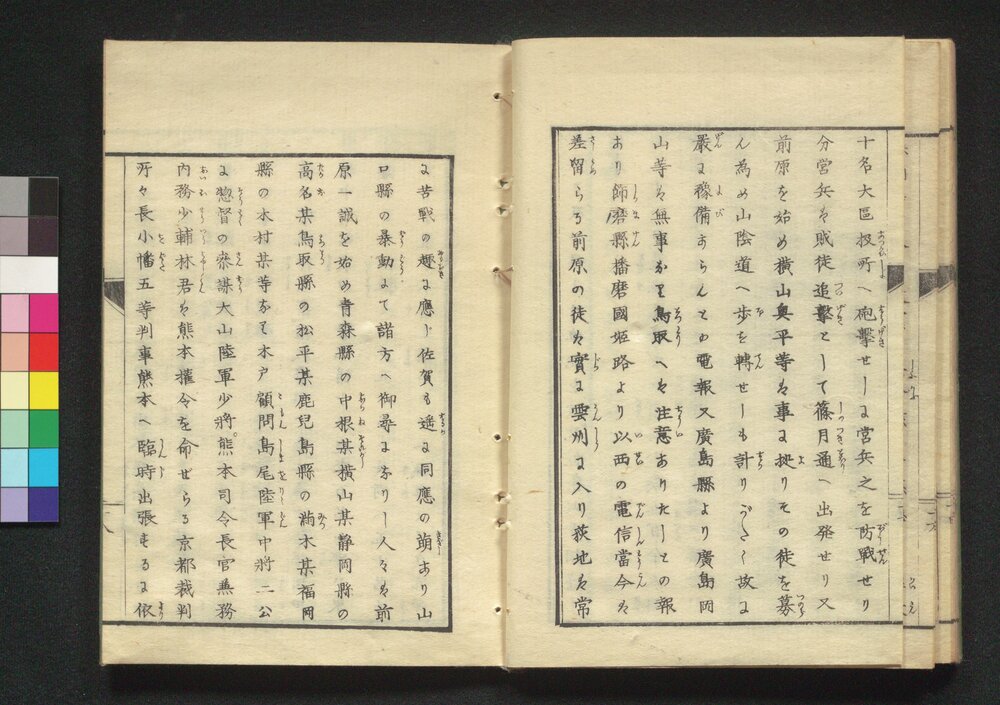 十名大區役所へ砲撃せしに営兵之を防戦せり
分営兵は賊徒追撃として篠月通へ出発せり又
前原を始め横山奥平等は事に拠りその徒を募
ん為め山陰道へ歩を轉せしも計りがたく故に
嚴に豫備あらんとの電報又廣島縣より廣島岡
山等は無事なれ𪜈鳥取へは注意ありたしとの報
あり飾磨縣播磨國姫路より以西の電信當今は
差留らる前原の徒は實に雲州に入り荻地は常
に苦戦の趣に應じ佐賀も遥に同應の萌あり山
口縣の暴動にて諸方へ御尋になりし人々は前
原一誠を始め青森縣の中根某横山某静岡縣の
高名某鳥取縣の松平某鹿児島縣の満木某福岡
縣の水村某等なり木戸顧問鳥尾陸軍中将二公
に惣督の参謀大山陸軍少将熊本司令長官兼務
内務少輔林君は熊本權令を命ぜらる京都裁判
所々長小幡五等判事熊本へ臨時出張するに依